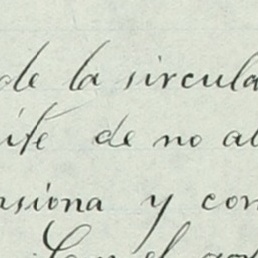 de la circula
ite de no al
nsiona y con